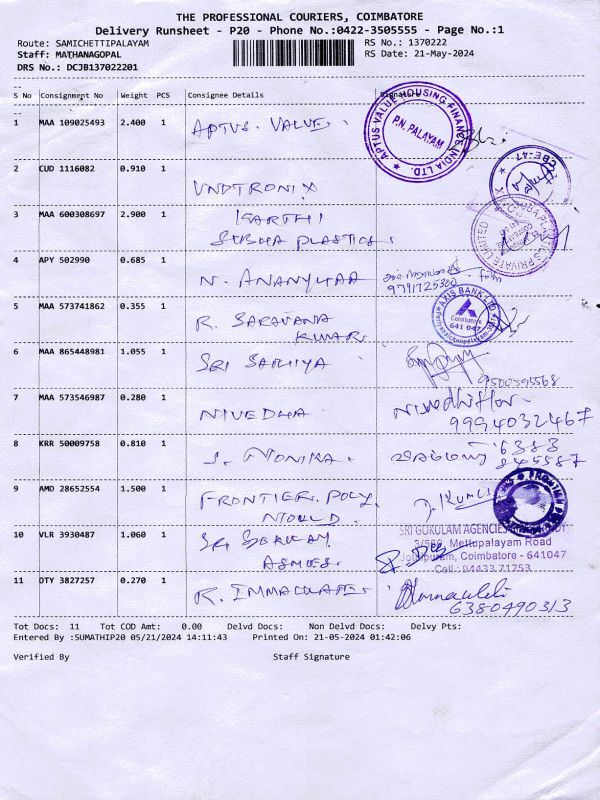 THE PROFESSIONAL COURIERS, COIMBATORE
Delivery Runsheet - P20 - Phone No.:0422-3505555 - Page No.:1
Route: SAMICHETTIPALAYAM RS No.: 1370222
Staff: MATHANAGOPAL RS Date: 21-May-2024
DRS No.: DCJB137022201
S No Consignment No Weight PCS Consignee Details Signature
1 MAA 109025493 2.400 1 APTUS. VALUE.
APTUS VALUE HOUSING FINANCE INDIA LTD.
P.N. PALAYAM
2 CUD 1116082 0.910 1 VNDTRONIX
CBE-47
3 MAA 600308697 2.900 1 KARTHI
SUBHA PLASTICS.
PRIVATE LIMITED
4 APY 502990 0.685 1 N. ANANYHAA
9791725300
5 MAA 573741862 0.355 1 R. SARAVANA
KUMAR.
AXIS BANK LTD
Coimbatore
641 047
6 MAA 865448981 1.055 1 SRI SAHIYA
9500595568
7 MAA 573546987 0.280 1 NIVEDHA
9994032467
8 KRR 50009758 0.810 1 S. MONIKA.
6383
845587
9 AMD 28652554 1.500 1 FRONTIER. POLY
MOULD.
D. Kumar
10 VLR 3930487 1.060 1 SRI
SRI GOKULAM AGENCIES
3/560, Mettupalayam Road
Jothipuram, Coimbatore - 641047
Cell : 94433 71753
11 DTY 3827257 0.270 1 R. IMMACULATE.
6380490313
Tot Docs: 11 Tot COD Amt: 0.00 Delvd Docs: Non Delvd Docs: Delvy Pts:
Entered By :SUMATHIP20 05/21/2024 14:11:43 Printed On: 21-05-2024 01:42:06
Verified By Staff Signature